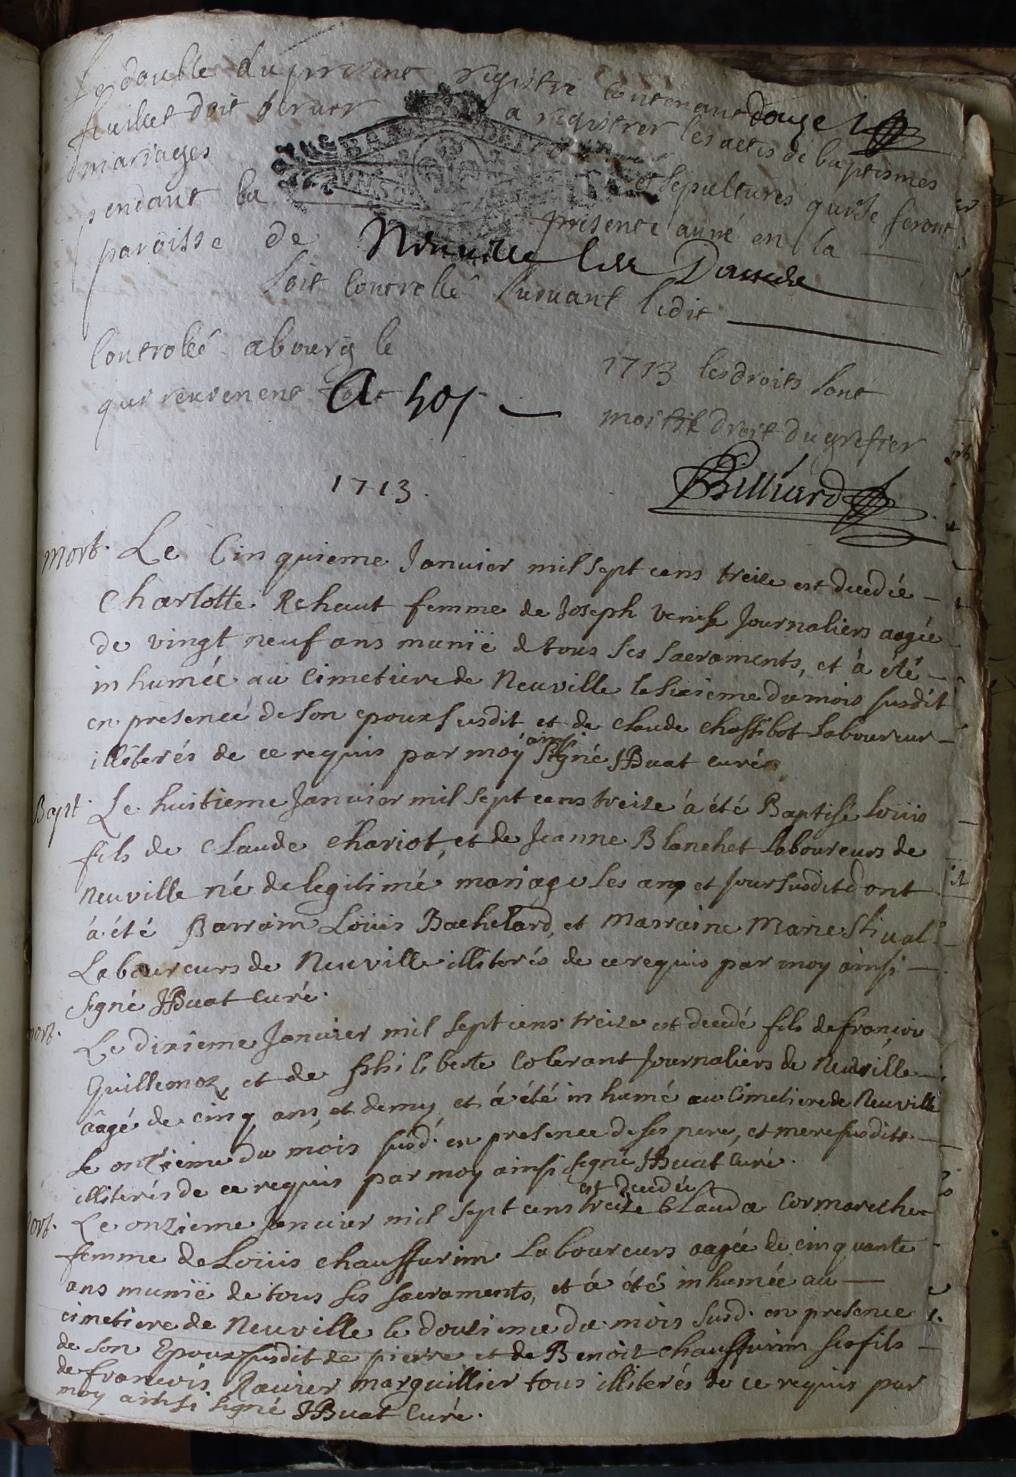 Le double du present registre contenant douze
feuillet doit servir a registrer les actes de baptismes
mariages et sepultures qui se feront
pendant la presente année en la
paroisse de Neuville les Dames
soit controllé suivant ledit
Controllé a bourg le 1713 les droits sont
qui reviennent A 50s moitié droit du grefier
Billiard
1713.
mort. Le Cinquieme Janvier mil sept cens treize est decedée
Charlotte Rehaut femme de Joseph Journaliers aagée
de vingt neuf ans munië de tous ses sacraments, et à été
inhumée au Cimetiere de Neuville le sixieme du mois susdit
en presence de son epoux susdit et de Claude Chassibot Laboureur
illiterés de ce requis par moÿ ainsi signé JBuat Curé
Bapt. Le huitieme Janvier mil sept cens treize à été Baptisé Loüis
fils de Claude Chariot, et de Jeanne Blanchet Laboureurs de
Neuville né de legitimé mariage les an et Jour susdit dont
à été Parrain Loüis Bachelard, et Marraine Marie
Laboureurs de Neuville illiterés de ce requis par moy ainsi
signé JBuat Curé.
mort. Le dixieme Janvier mil sept cens treize est decedé fils de françois
Guillemoz, et de philiberte Colerant Journaliers de Neuville
âagé de cinq ans et demy, et à été inhumé au Cimetiere de Neuville
le onzieme du mois susd. en presence de ses pere, et mere susdits
illiterés de ce requis par moy ainsi signé JBuat Curé.
mort. Le onzieme Janvier mil sept cens treize est decedée Clauda Cormareche
femme de Loüis Chauffurin Laboureurs aagée de cinquante
ans munië de tous ses sacraments, et à été inhumée au
cimetiere de Neuville le douzieme du mois susd. en presence
de son Epoux susdit de pierre et de Benoit Chauffurin ses fils
de francois marguillier tous illiterés de ce requis par
moy ainsi signé JBuat Curé.